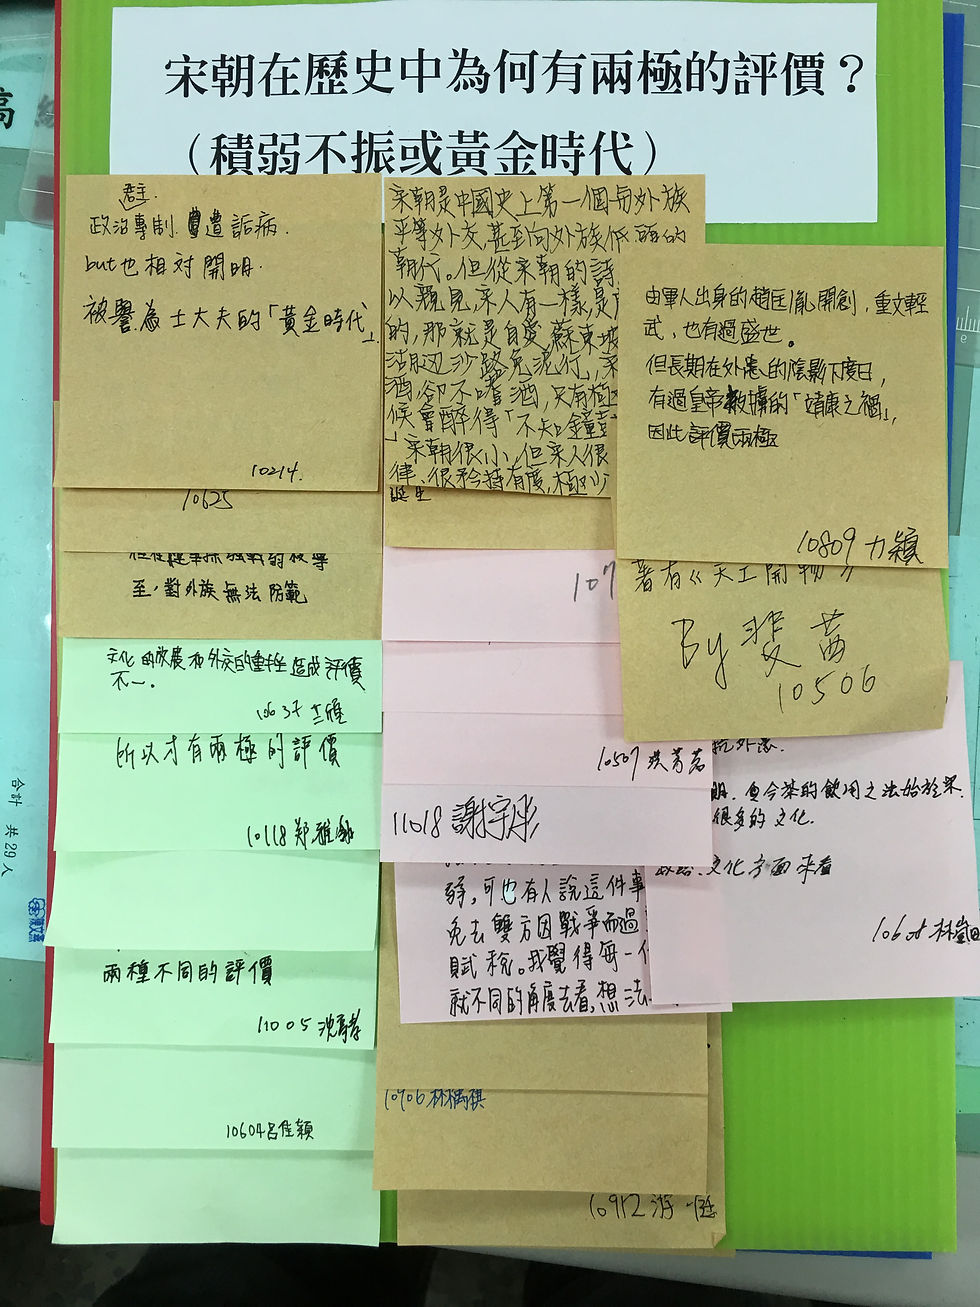 宋朝在歷史中為何有兩極的評價？
（積弱不振或黃金時代）
君主
政治專制 遭詬病.
but也相对開明.
被譽為士大夫的「黃金時代」
10214.
10625
至，對外族無法防範
文化的發展和外交的 造成評價
不一。
10637
所以才有兩極的評價
10118 郑雅
兩種不同的評價
11005 沈
10604呂佳穎
宋朝是中國史上第一個與外族
平等外交，甚至向外族低頭的
朝代。但從宋朝的詩
以窺見，宋人有一樣是
的，那就是自愛，蘇東坡
湖边沙路免泥行，
酒，卻不嗜酒，只有極
候會醉得「不知鐘
」宋朝很小，但宋人很
律、很矜持有度，極少
誕生
107
10507 洪芳茗
11018 謝宇彤
弱，可也有人說這件事
免去雙方因戰爭而過
賦稅。我覺得每一
就不同的角度去看，想法
10906 林
10912 游
由軍人出身的趙匡胤開創，重文輕
武，也有過盛世。
但長期在外患的陰影下度日，
有過皇帝 擄的「靖康之禍」，
因此評價兩極
10809 力穎
著有《天工開物》
By 斐茜
10506
抗外患.
今茶的飲用之法始於宋
很多的文化.
文化方面來看
106 林
合計 共29人